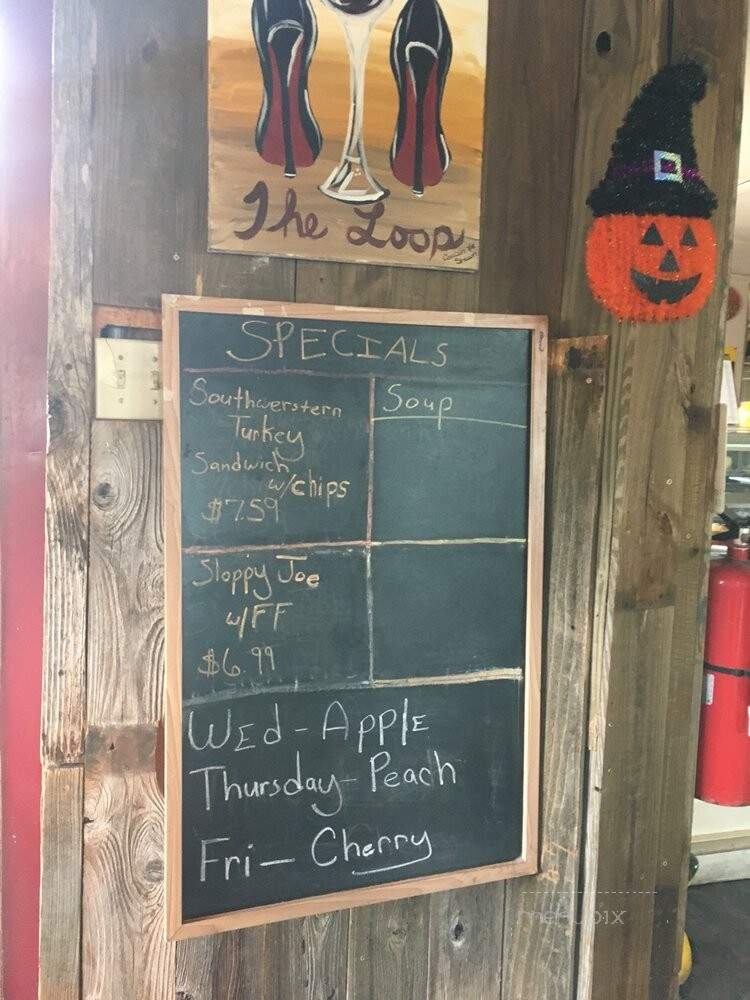 The Loop
SPECIALS
Southwerstern
Turkey
Sandwich
w/chips
$7.59
Soup
Sloppy Joe
w/FF
$6.99
WEd - Apple
Thursday - Peach
Fri - Cherry
menupix